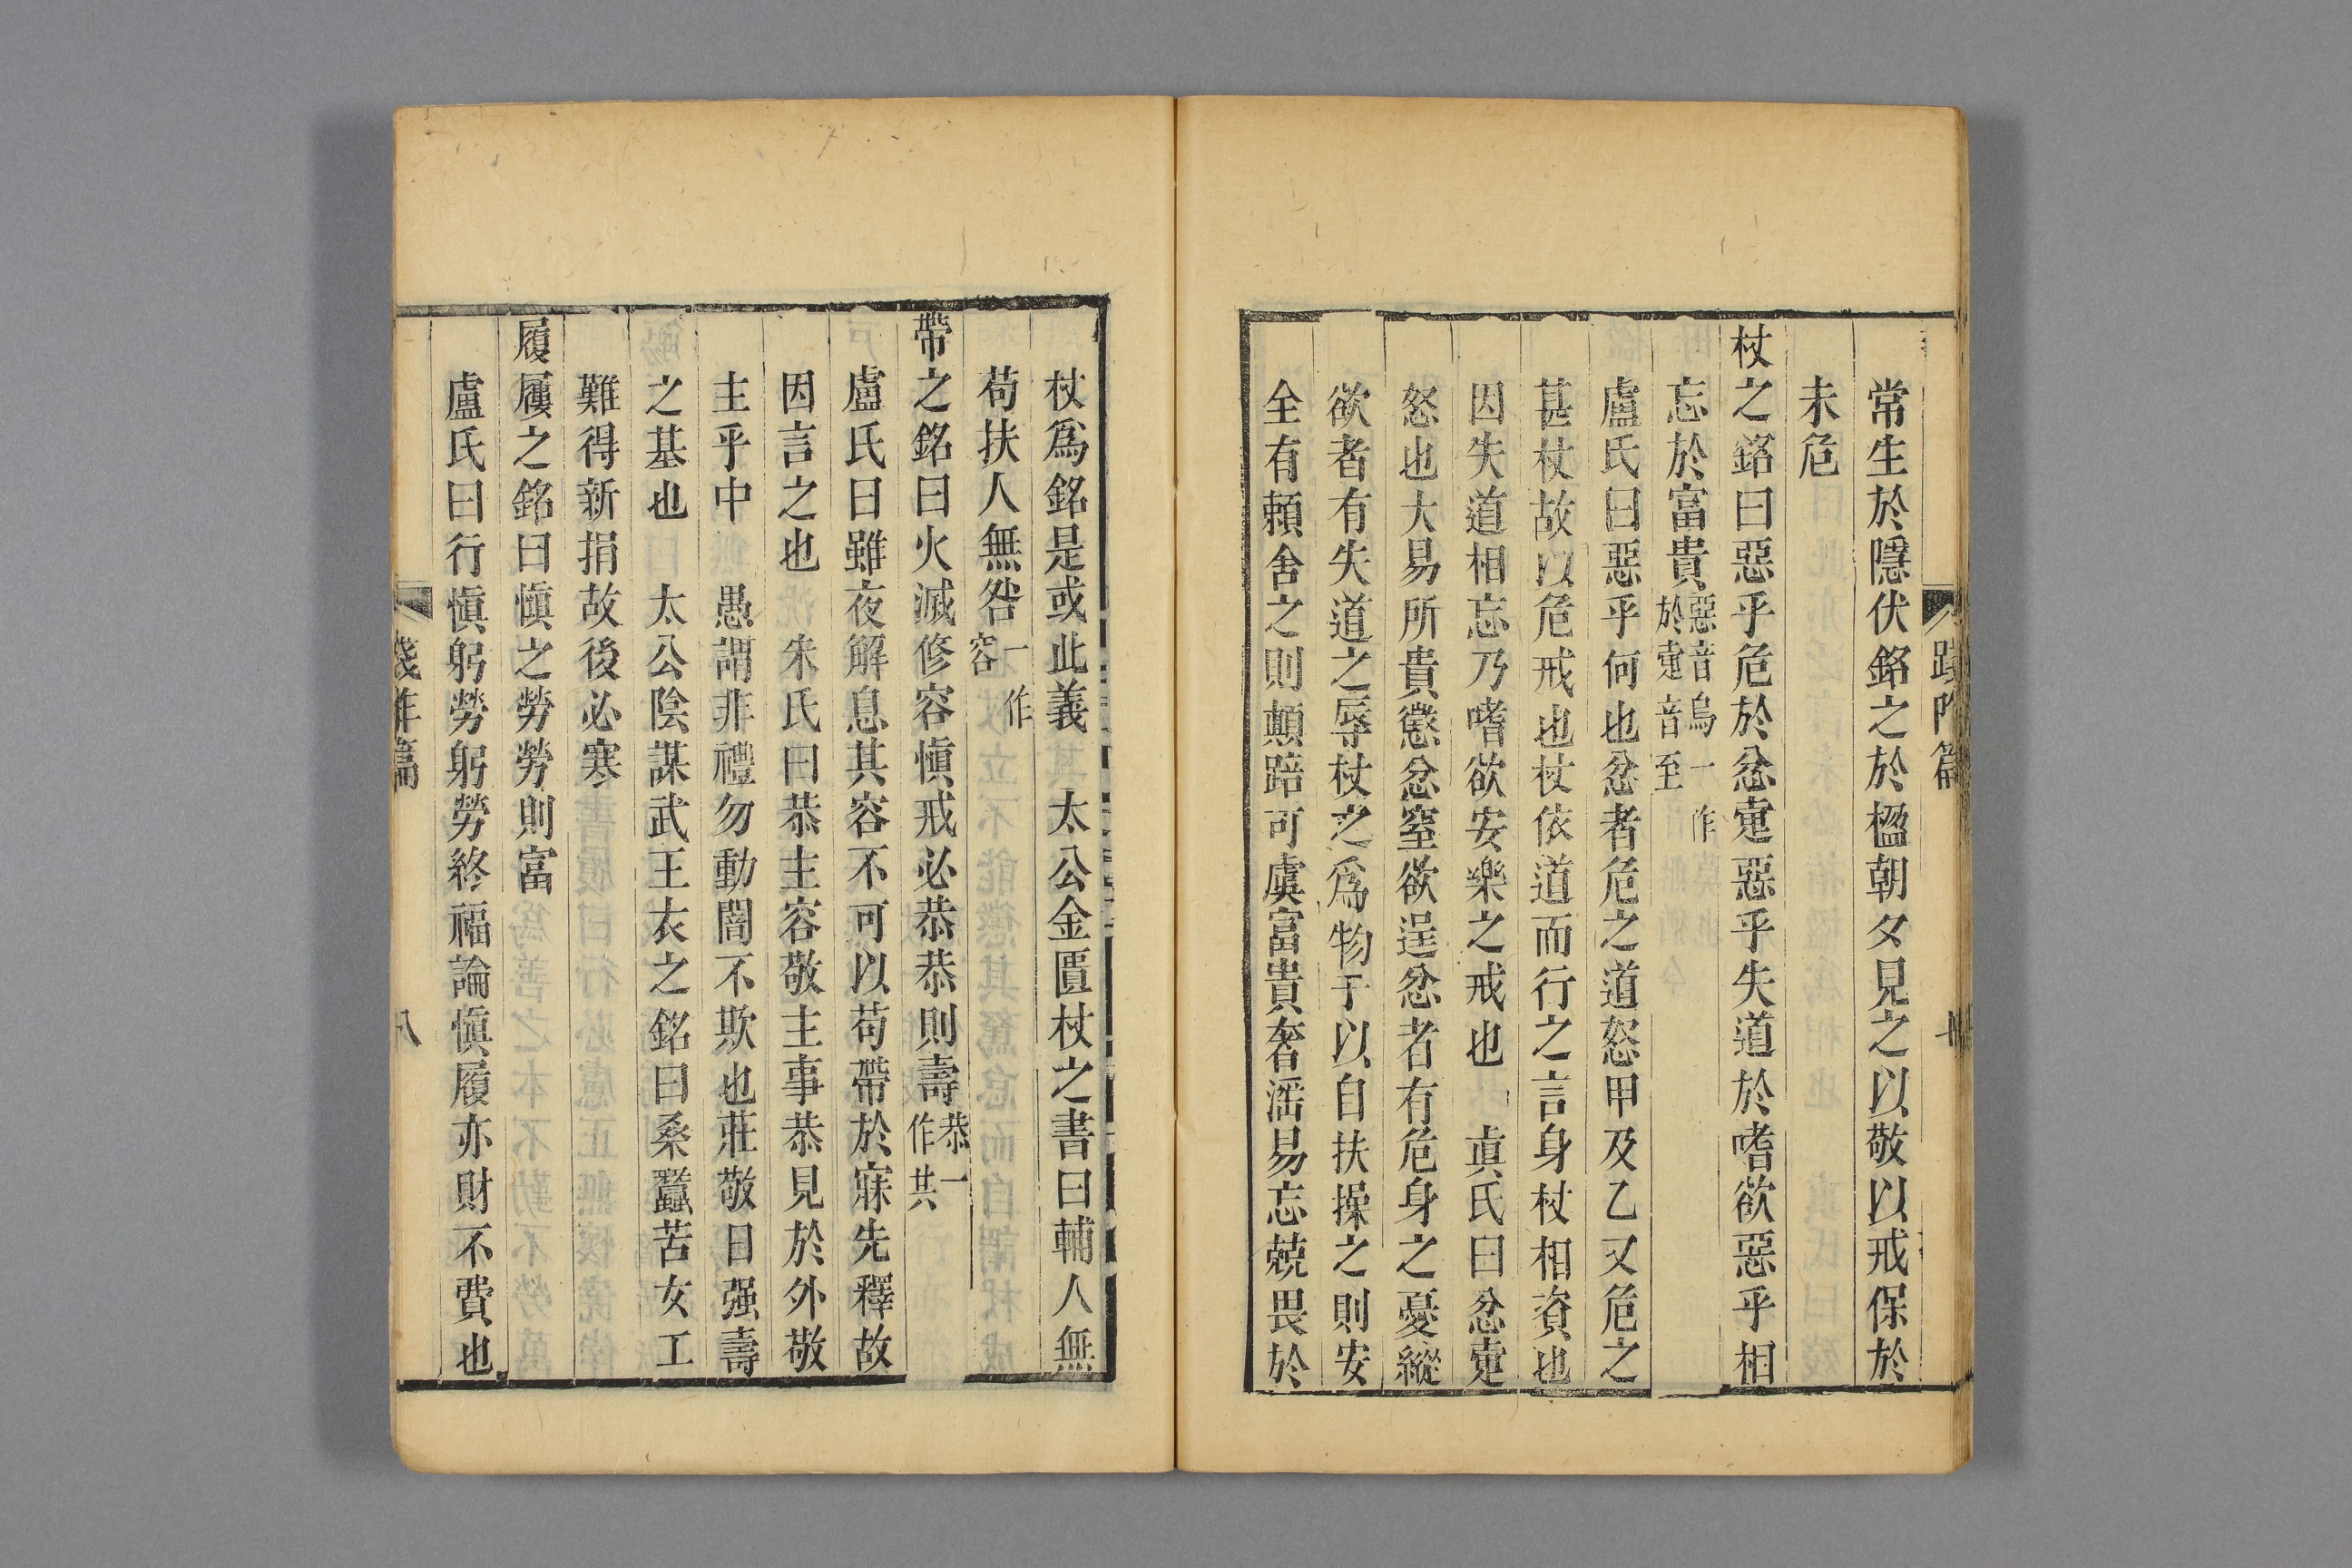 常生於隱伏銘之於楹朝夕見之以敬以戒保於
未危
杖之銘曰惡乎危於忿疐惡乎失道於嗜欲惡乎相
忘於富貴惡音烏一作於疐音至
盧氏曰惡乎何也忿者危之道怒甲及乙又危之
甚杖故以危戒也杖依道而行之言身杖相資也
因失道相忘乃嗜欲安樂之戒也　真氏曰忿疐
怒也大易所貴懲忿窒欲逞忿者有危身之憂縱
欲者有失道之辱杖之爲物于以自扶操之則安
全有賴舍之則顛踣可虞富貴奢滛易忘兢畏於
杖爲銘是或此義　太公金匱杖之書曰輔人無
苟扶人無咎一作容
帶之銘曰火滅修容愼戒必恭恭則壽恭一作共
盧氏曰雖夜解息其容不可以苟帶於寐先釋故
因言之也　朱氏曰恭主容敬主事恭見於外敬
主乎中　愚謂非禮勿動闇不欺也莊敬日强壽
之基也　太公陰謀武王衣之銘曰桑蠶苦女工
難得新捐故後必寒
履屨之銘曰愼之勞勞則富
盧氏曰行愼躬勞躬勞終福論愼履亦財不費也
篇
八